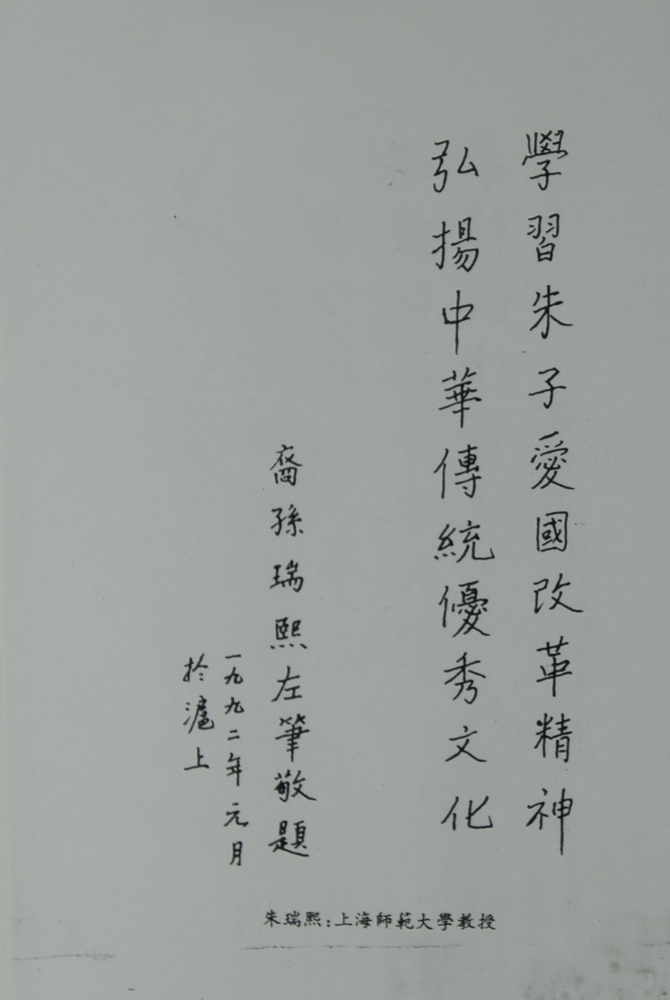 學習朱子愛國改革精神
弘揚中華傳統優秀文化
裔孫瑞熙左筆敬題
一九九二年元月
於滬上
朱瑞熙:上海師範大學教授